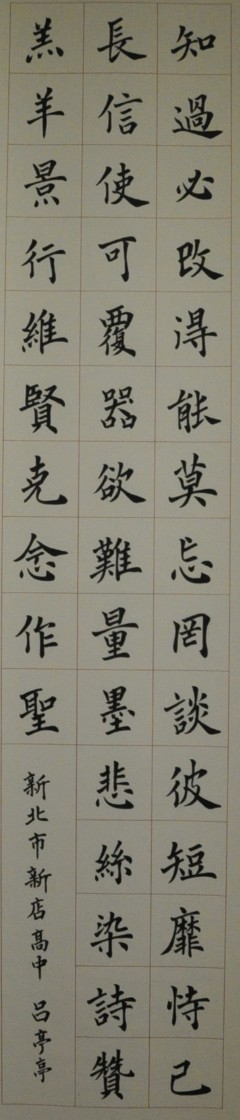 知過必改得能莫忘罔談彼短靡恃己
長信使可覆器欲難量墨悲絲染詩贊
羔羊景行維賢克念作聖
新北市新店高中 呂亭亭